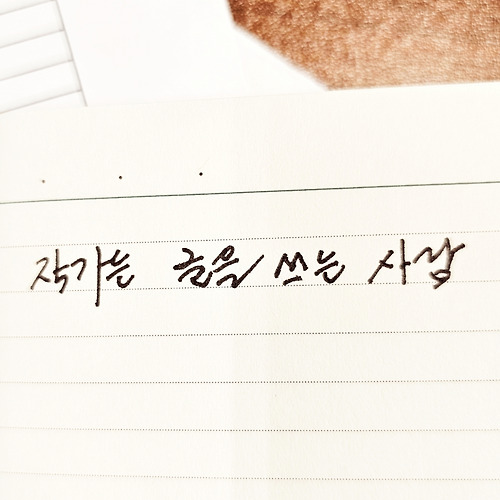 작가는 글을 쓰는 사람